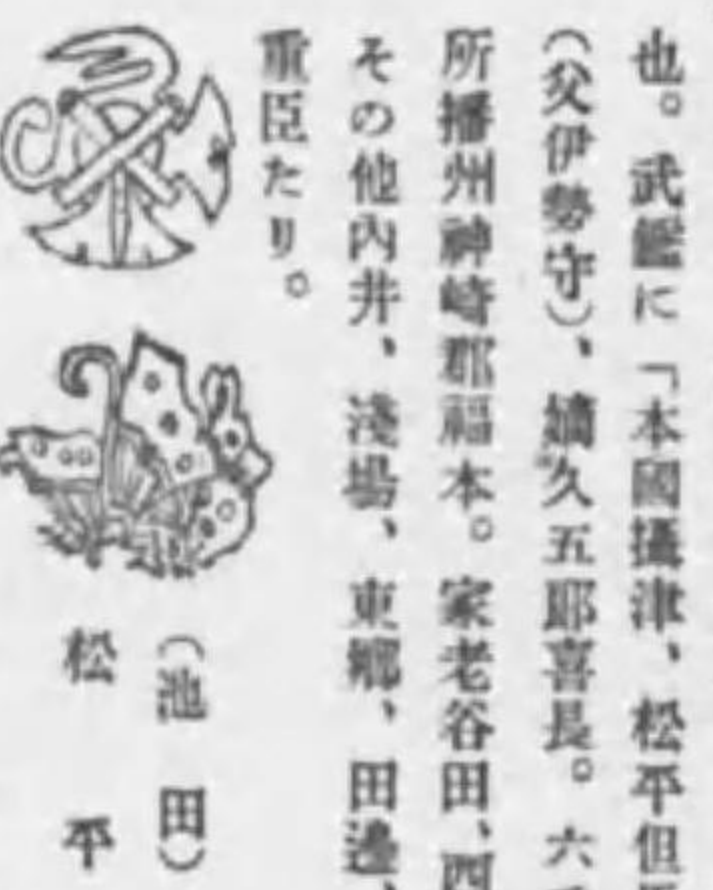 也。武鑑に「本國攝津、松平但
(父伊勢守)、嫡久五郎喜長。六
所播州神崎郡福本。家老谷田、西
その他內井、淺場、東鄕、田邊、
重臣たり。
(池田)
松平